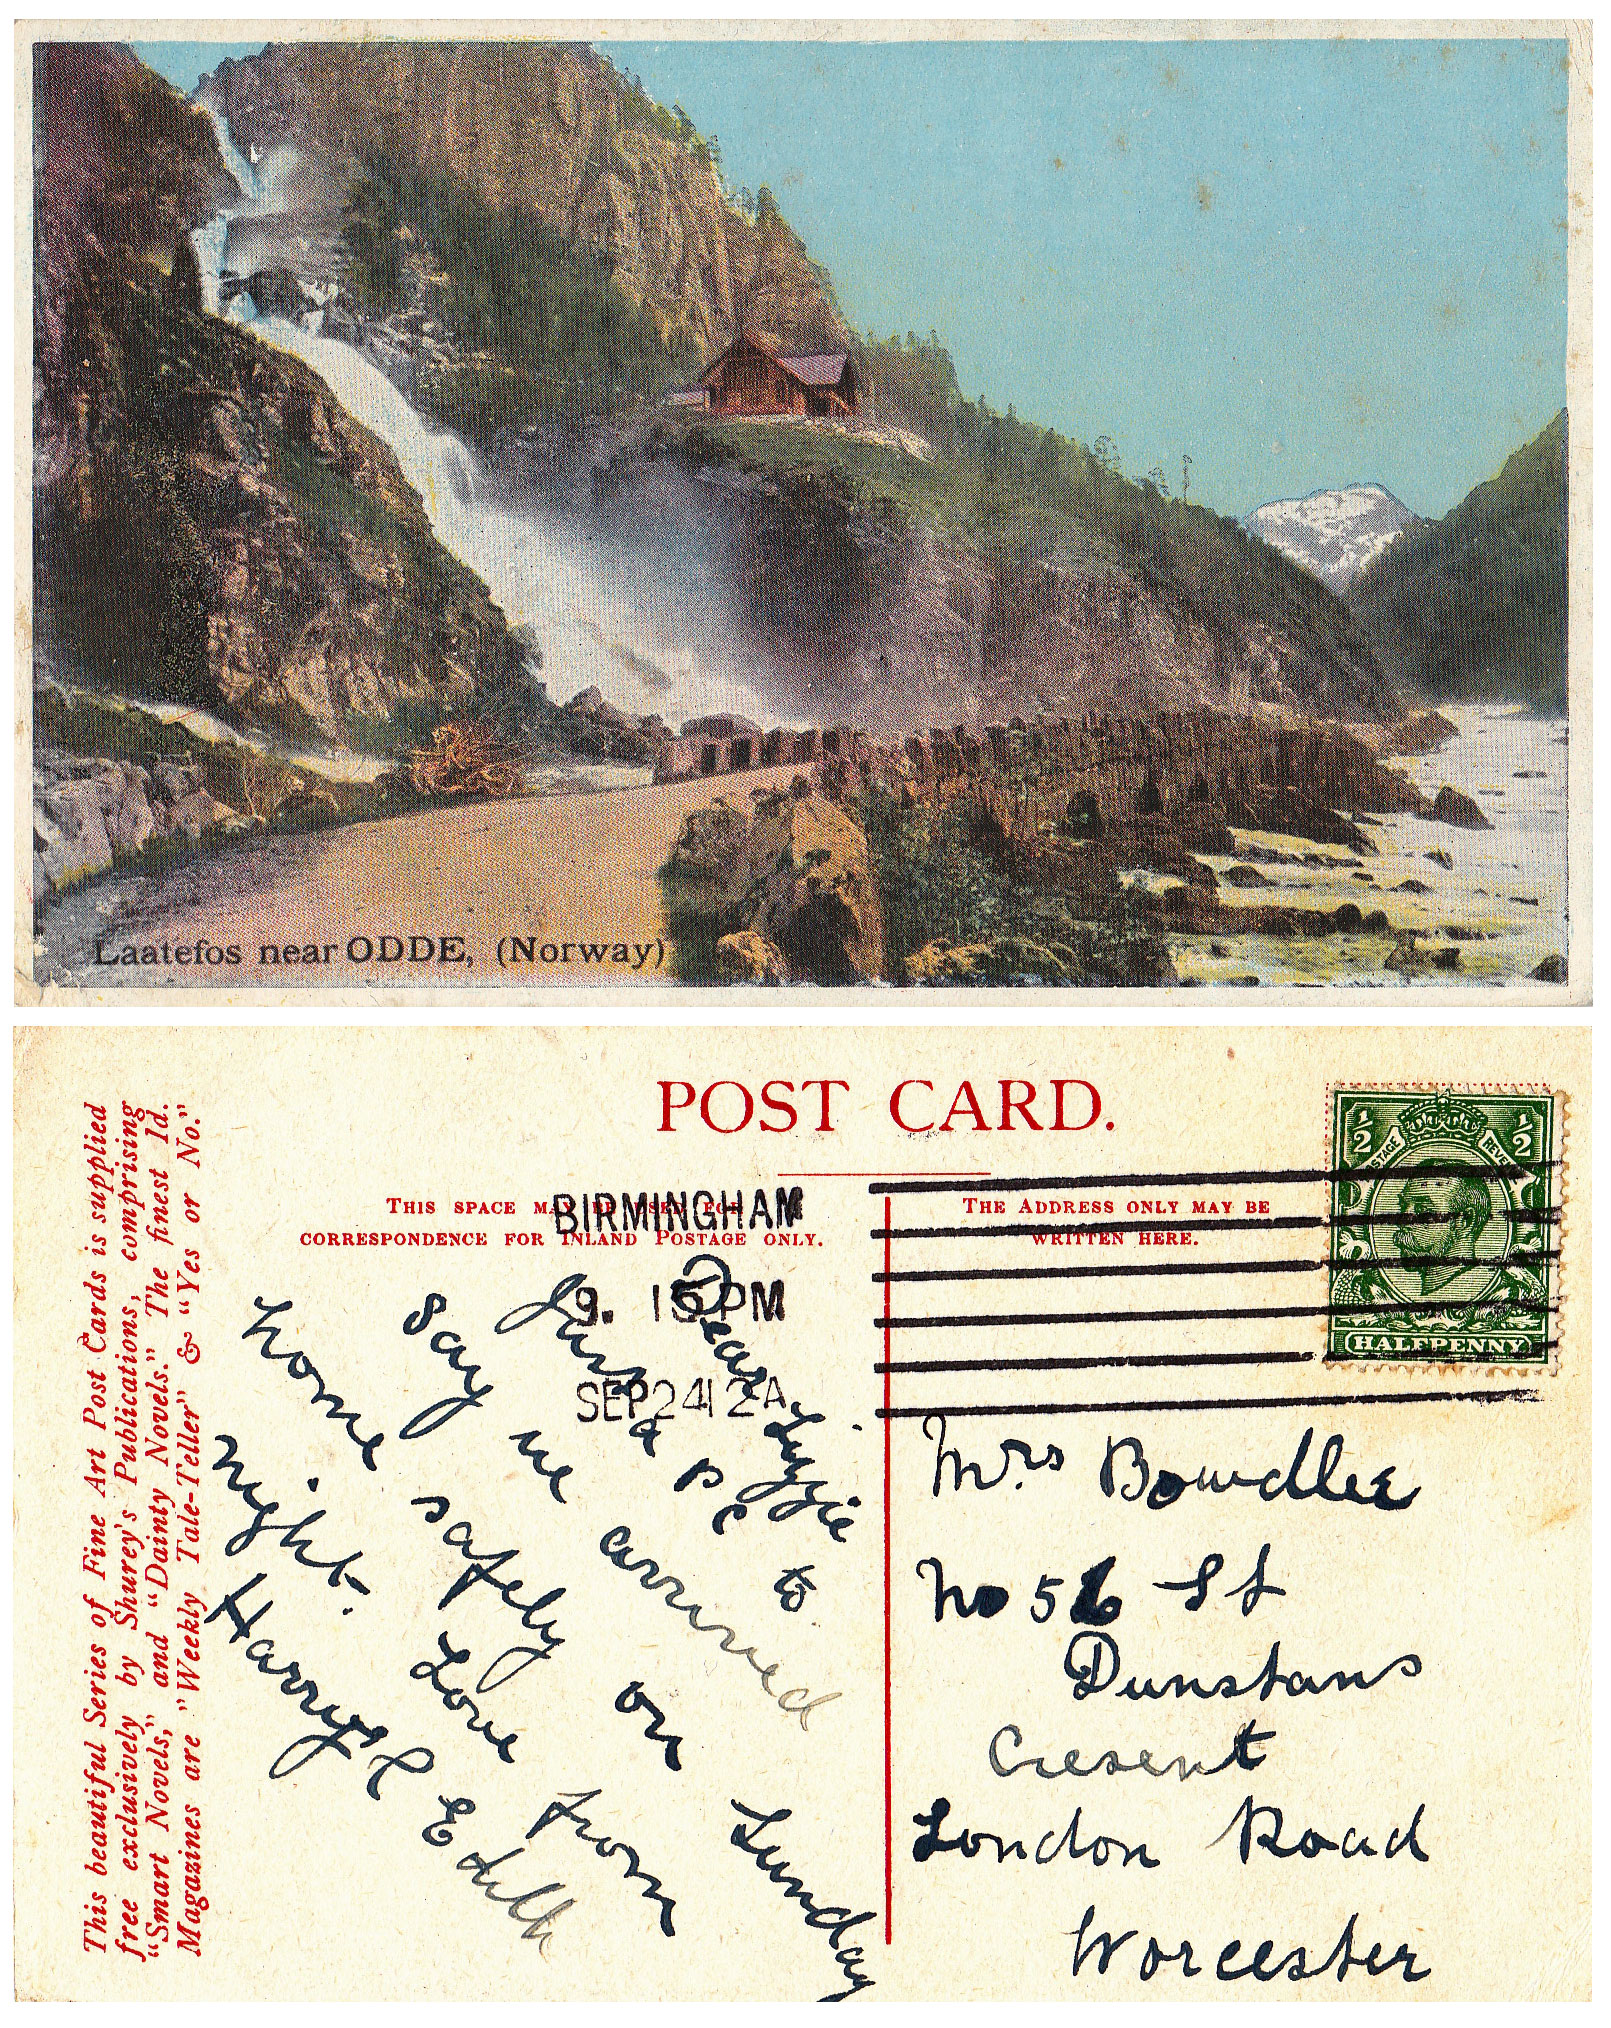 Laatefos near ODDE, (Norway)
POST CARD.
This beautiful Series of Fine Art Post Cards is supplied
free exclusively by Shurey's Publications, comprising
"Smart Novels," and "Dainty Novels." The finest 1d.
Magazines are "Weekly Tale-Teller" & "Yes or No."
THIS SPACE MAY BE USED FOR
CORRESPONDENCE FOR INLAND POSTAGE ONLY.
THE ADDRESS ONLY MAY BE
WRITTEN HERE.
BIRMINGHAM
9. 15 PM
SEP 24 12 A
POSTAGE REVENUE
½ ½
HALFPENNY
Dear Lizzie
Just a PC to
say we arrived
home safely on Sunday
night. Love from
Harry & Edith
Mrs Bowdler
No 56 St
Dunstans
Cresent
London Road
Worcester